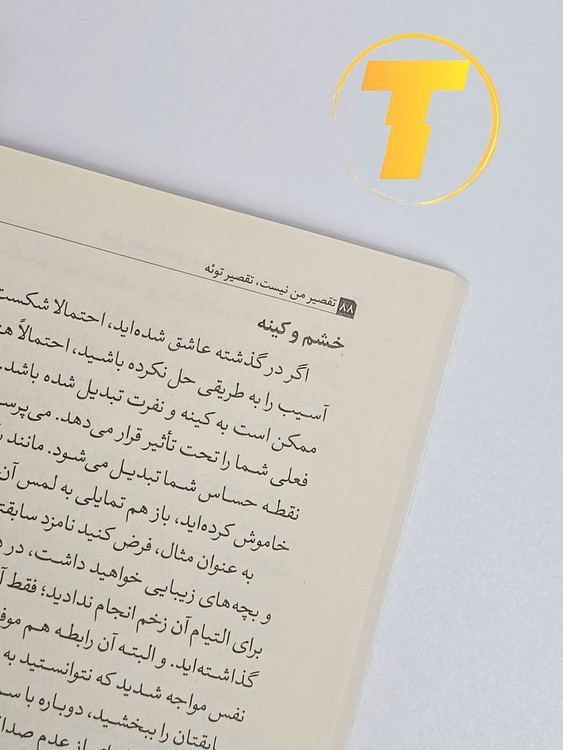 T
۸۸ تقصیر من نیست، تقصیر توئه
خشم و کینه
اگر در گذشته عاشق شده‌اید، احتمالا شکست
آسیب را به طریقی حل نکرده باشید، احتمالاً
ممکن است به کینه و نفرت تبدیل شده باشد.
فعلی شما را تحت تأثیر قرار می‌دهد.
نقطه حساس شما تبدیل می‌شود. مانند
خاموش کرده‌اید، باز هم تمایلی به لمس آن
به عنوان مثال، فرض کنید نامزد
و بچه‌های زیبایی خواهید داشت، در
برای التیام آن زخم انجام ندادید؛ فقط
گذاشته‌اید. و البته آن رابطه هم
نفس مواجه شدید که نتوانستید به
را ببخشید، دوباره با
از عدم